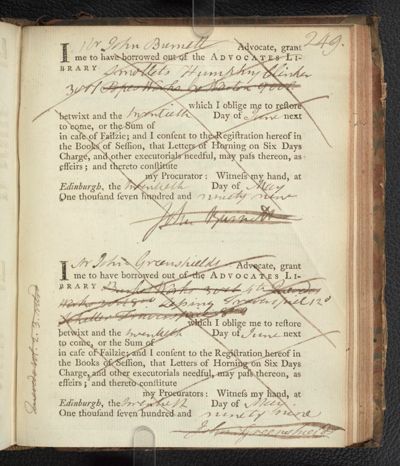 249.
I Mr John Burnett Advocate, grant
me to have borrowed out of the ADVOCATES LI-
BRARY Smolletts Humphry Clinker
3 vol
which I oblige me to restore
betwixt and the twentieth Day of June next
to come, or the Sum of
in case of Failzie; and I consent to the Registration hereof in
the Books of Session, that Letters of Horning on Six Days
Charge, and other executorials needful, may pass thereon, as
effeirs; and thereto constitute
my Procurator: Witness my hand, at
Edinburgh, the twentieth Day of May
One thousand seven hundred and ninety nine
John Burnett
I Mr John Greenshields Advocate, grant
me to have borrowed out of the ADVOCATES LI-
BRARY
which I oblige me to restore
betwixt and the twentieth Day of June next
to come, or the Sum of
in case of Failzie; and I consent to the Registration hereof in
the Books of Session, that Letters of Horning on Six Days
Charge, and other executorials needful, may pass thereon, as
effeirs; and thereto constitute
my Procurators: Witness my hand, at
Edinburgh, the twentieth Day of May
One thousand seven hundred and ninety nine
John Greenshields